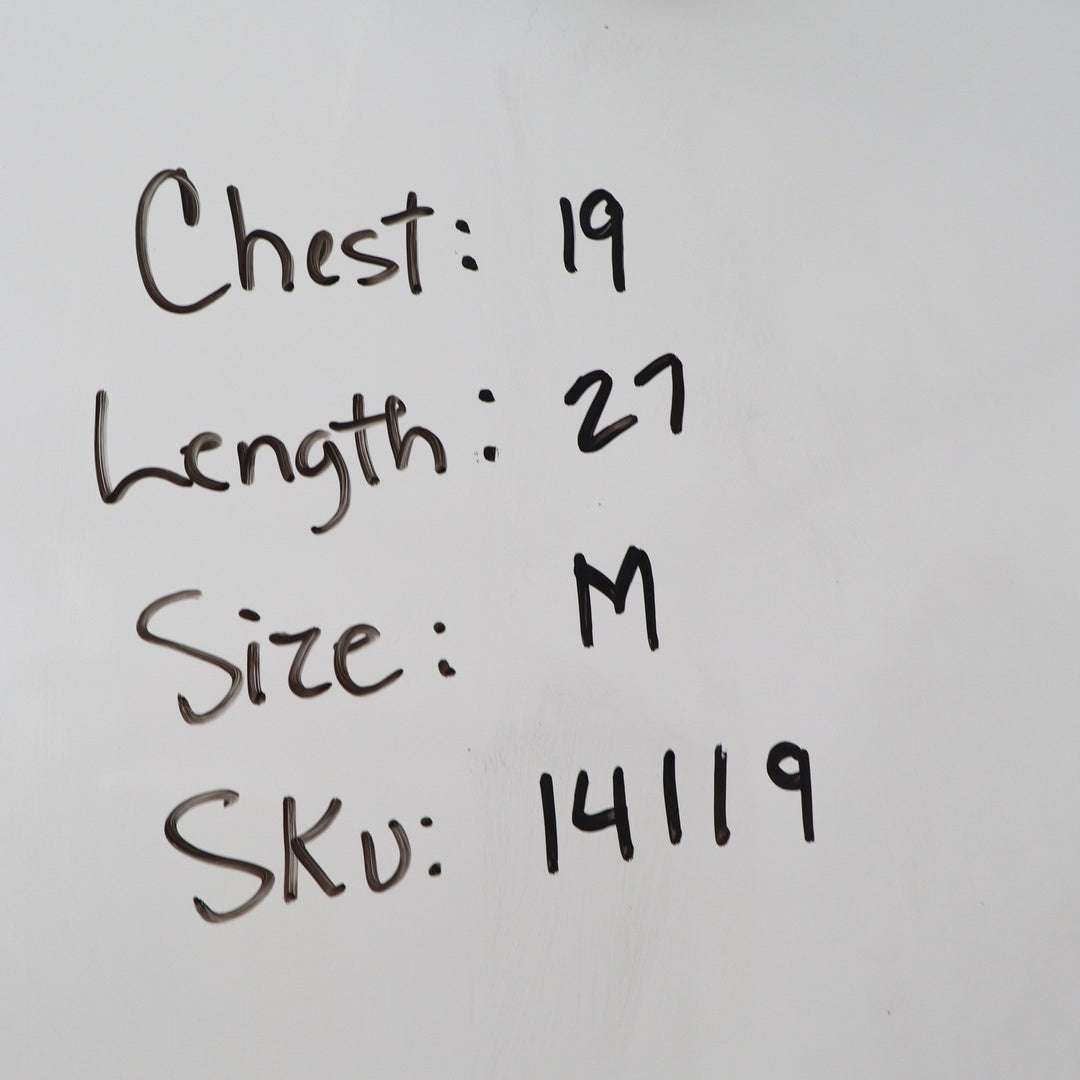 Chest: 19
Length: 27
Size: M
SKU: 14119